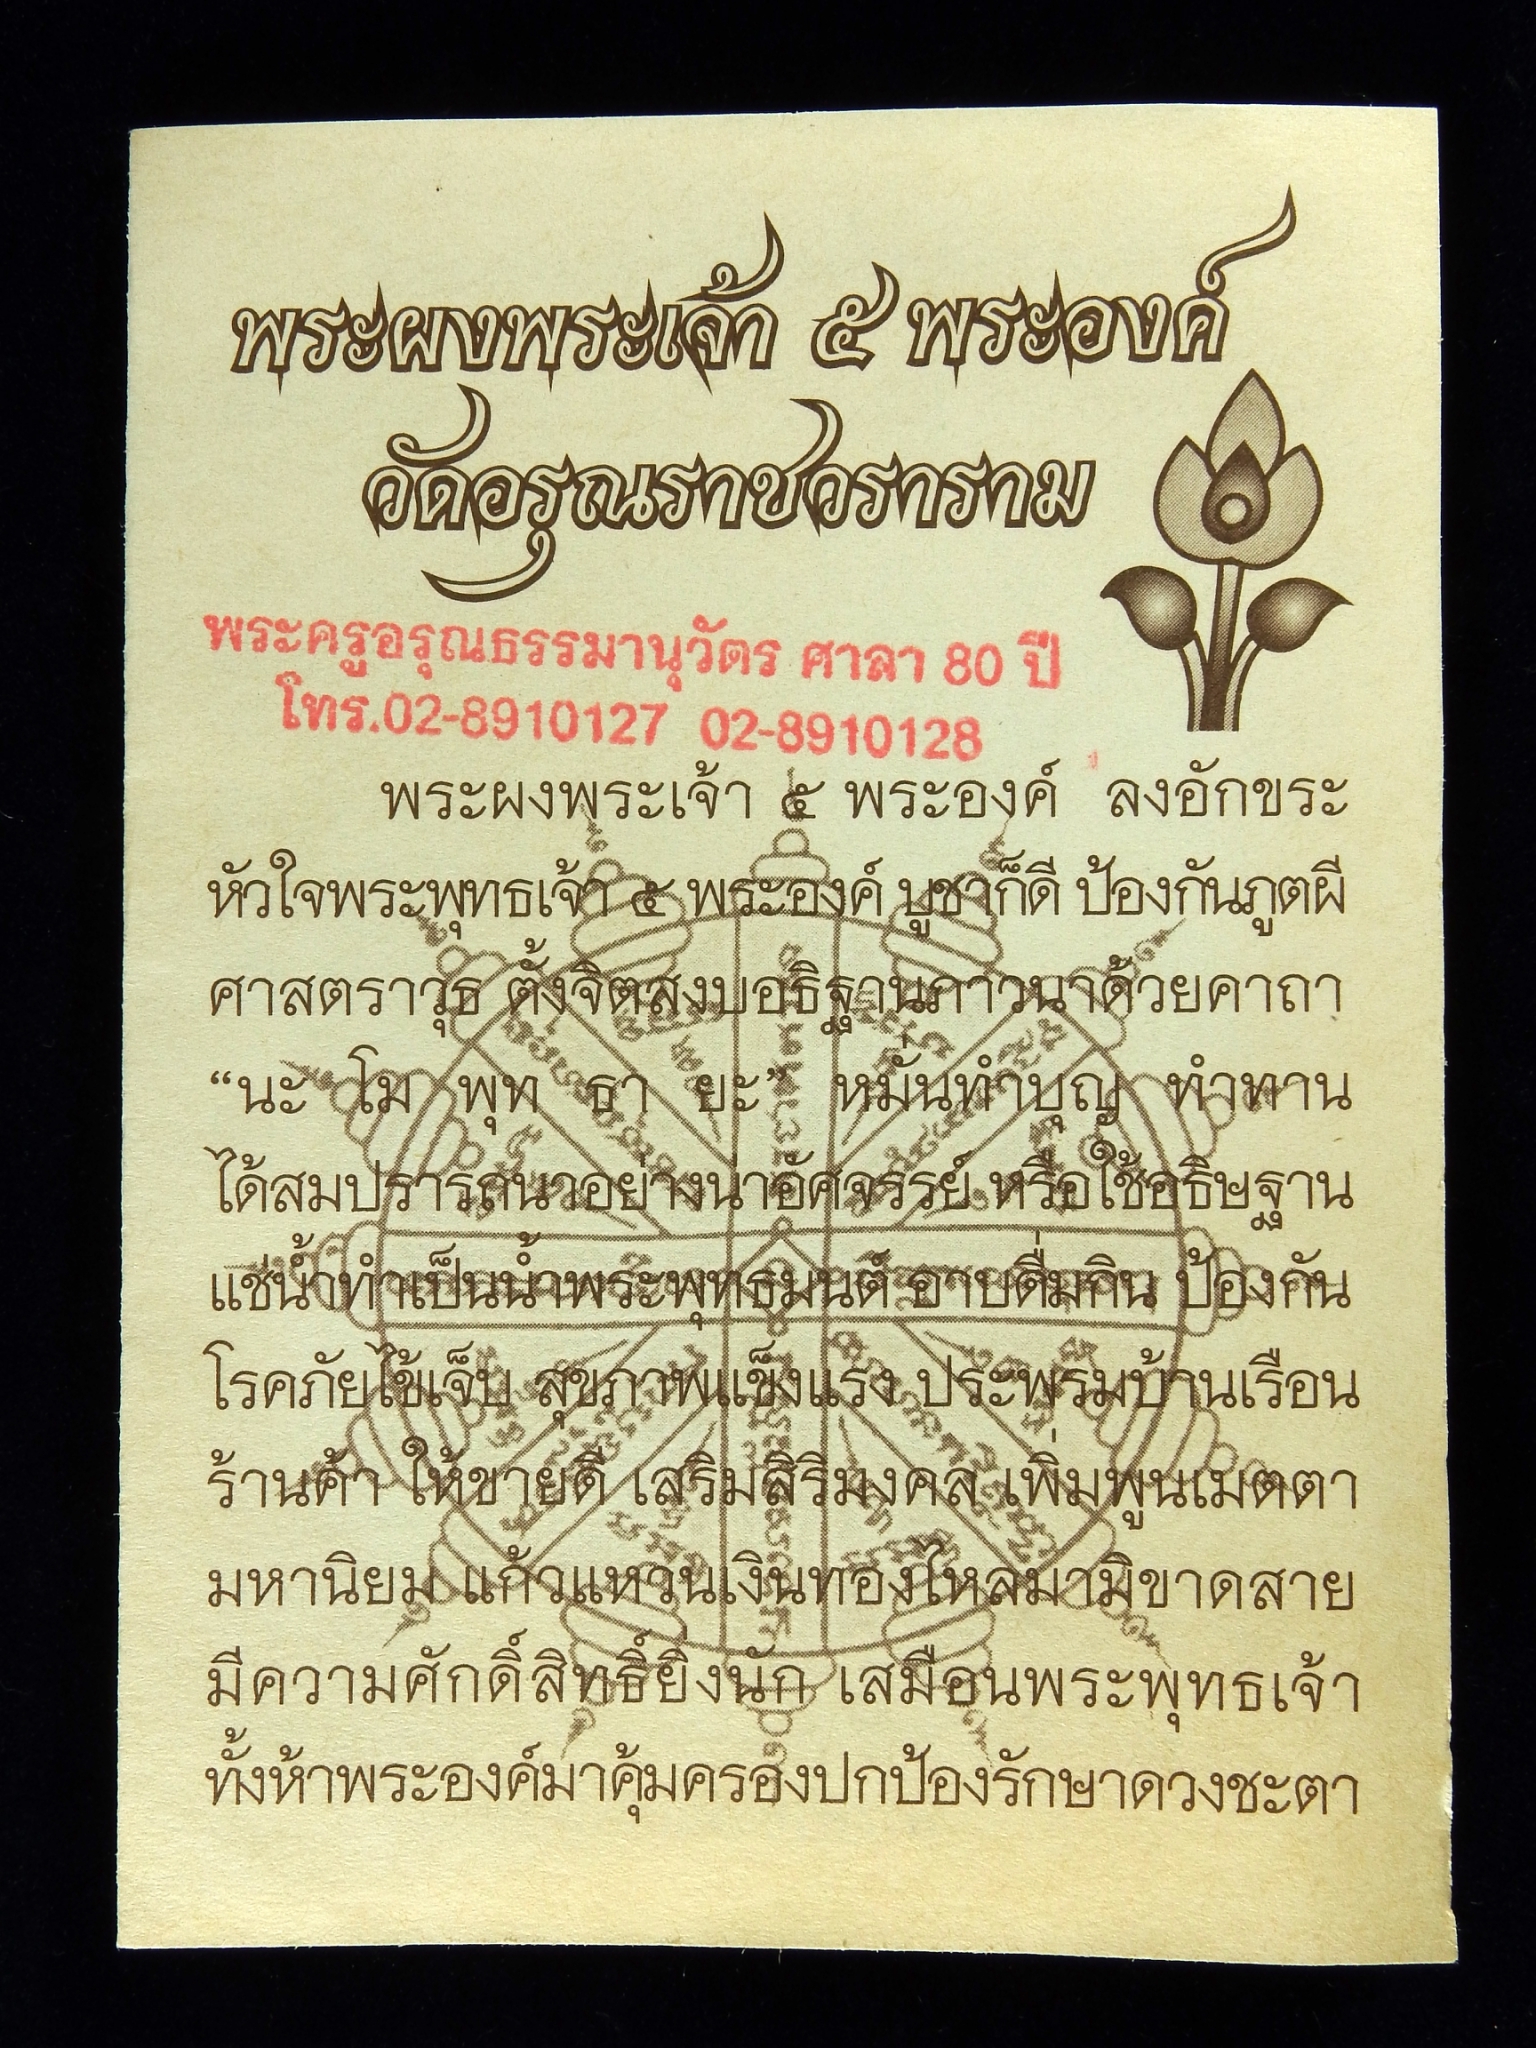 พระผงพระเจ้า ๕ พระองค์
วัดอรุณราชวราราม
พระครูอรุณธรรมานุวัตร ศาลา 80 ปี
โทร.02-8910127 02-8910128
พระผงพระเจ้า ๕ พระองค์ ลงอักขระ
หัวใจพระพุทธเจ้า ๕ พระองค์ บูชาก็ดี ป้องกันภูตผี
ศาสตราวุธ ตั้งจิตสงบอธิฐานภาวนาด้วยคาถา
“นะ โม พุท ธา ยะ” หมั่นทำบุญ ทำทาน
ได้สมปรารถนาอย่างน่าอัศจรรย์ หรือใช้อธิษฐาน
แช่น้ำทำเป็นน้ำพระพุทธมนต์ อาบดื่มกิน ป้องกัน
โรคภัยไข้เจ็บ สุขภาพแข็งแรง ประพรมบ้านเรือน
ร้านค้า ให้ขายดี เสริมสิริมงคล เพิ่มพูนเมตตา
มหานิยม แก้วแหวนเงินทองไหลมามิขาดสาย
มีความศักดิ์สิทธิ์ยิ่งนัก เสมือนพระพุทธเจ้า
ทั้งห้าพระองค์มาคุ้มครองปกป้องรักษาดวงชะตา